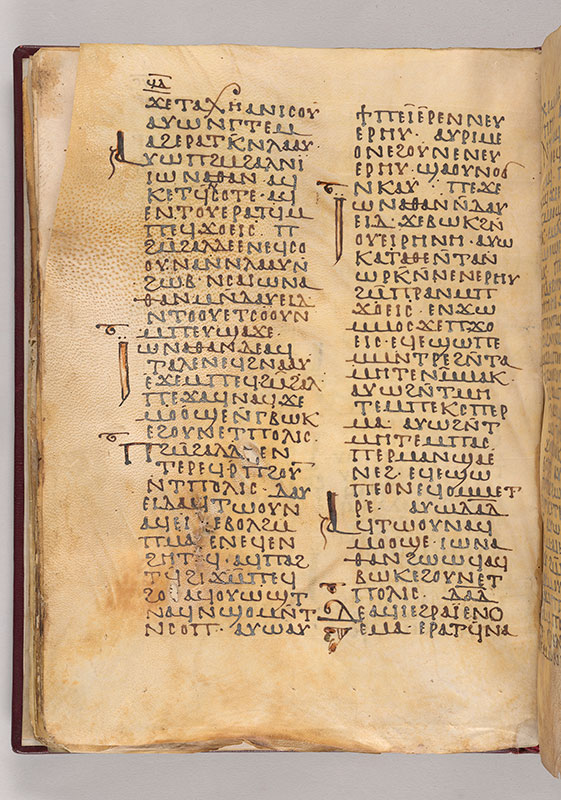 ϥⲇ
ϫⲉⲧⲁⲭⲏⲁⲛⲓⲥⲟⲩ
ⲁⲩⲱⲛⲅⲧⲙ
ⲁϩⲉⲣⲁⲧⲕⲛⲗⲁⲁⲩ
ⲁⲩⲱⲡϩⲙϩⲁⲗⲛⲓ
ⲓⲱⲛⲁⲑⲁⲛ· ⲁϥ
ⲕⲉⲧϥⲥⲟⲧⲉ· ⲁϥ
ⲉⲛⲧⲟⲩⲉⲣⲁⲧϥⲙ
ⲡⲉϥϫⲟⲉⲓⲥ· ⲡ
ϩⲙϩⲁⲗⲇⲉⲉⲛⲉϥⲥⲟ
ⲟⲩⲛⲁⲛⲛⲗⲁⲁⲩⲛ̄
ϩⲱⲃ· ⲛⲥⲁⲓⲱⲛⲁ
ⲑⲁⲛⲙⲛⲇⲁⲩⲉⲓⲇ
ⲛⲧⲟⲟⲩⲉⲧⲥⲟⲟⲩⲛ
ⲙⲡⲉⲩϣⲁϫⲉ·
ⲓⲱⲛⲁⲑⲁⲛⲇⲉⲁϥ
ⲧⲁⲗⲉⲛⲉϥϩⲛⲁⲁⲩ
ⲉϫⲙⲡⲉϥϩⲙϩⲁⲗ
ⲡⲉϫⲁϥⲛⲁϥϫⲉ
ⲙⲟⲟϣⲉⲛ̄ⲅⲃⲱⲕ
ⲉϩⲟⲩⲛⲉⲧⲡⲟⲗⲓⲥ·
ⲡϩⲙϩⲁⲗⲇⲉⲛ
ⲧⲉⲣⲉϥⲣⲡϩⲟⲩ
ⲛⲧⲡⲟⲗⲓⲥ· ⲇⲁⲩ
ⲉⲓⲇⲁϥⲧⲱⲟⲩⲛ
ⲁϥⲉⲓ· ⲉⲃⲟⲗϩⲙ
ⲡⲙⲁ ⲉⲛⲉϥⲉⲛ
ϩⲏⲧϥ· ⲁϥⲡⲁϩ
ⲧϥϩⲓϫⲙⲡⲉϥ
ϩⲟ· ⲁϥⲟⲩⲱϣⲧ
ⲛⲁϥⲛϣⲟⲙⲛ̄ⲧ
ⲛⲥⲟⲡ· ⲁⲩⲱⲁⲩ
ϯⲡⲉⲓ̈ⲉⲣⲉⲛⲛⲉⲩ
ⲉⲣⲏⲩ· ⲁⲩⲣⲓⲙⲉ
ⲟⲛⲉϩⲟⲩⲛⲉⲛⲉⲩ
ⲉⲣⲏⲩ· ϣⲁⲟⲩⲛⲟϭ
ⲛⲕⲁⲩ· ⲡⲉϫⲉ
ⲓⲱⲛⲁⲑⲁⲛⲛ̄ⲇⲁⲩ
ⲉⲓⲇ· ϫⲉⲃⲱⲕϩⲛ̄
ⲟⲩⲉⲓⲣⲏⲛⲏ· ⲁⲩⲱ
ⲕⲁⲧⲁⲑⲉⲛ̄ⲧⲁⲛ̄
ⲱⲣⲕⲛ̄ⲛⲉⲛⲉⲣⲏⲩ
ϩⲙⲡⲣⲁⲛⲙⲡ
ϫⲟⲉⲓⲥ· ⲉⲛϫⲱ
ⲙⲙⲟⲥϫⲉⲡϫⲟ
ⲉⲓⲥ· ⲉϥⲉϣⲱⲡⲉ
ⲙⲙⲛⲧⲣⲉϩⲛ̄ⲧⲁ
ⲙⲏⲧⲉⲛⲙ̄ⲙⲁⲕ·
ⲁⲩⲱϩⲛ̄ⲧⲙⲏ
ⲧⲉⲙⲡⲉⲕⲥⲡⲉⲣ
ⲙⲁ· ⲁⲩⲱϩⲛ̄ⲧ
ⲙⲏⲧⲉⲙⲡⲁⲥ
ⲡⲉⲣⲙⲁⲛϣⲁⲉ
ⲛⲉϩ· ⲉϥⲉϣⲱ
ⲡⲉⲟⲛⲉϥⲟⲙⲙⲉⲧ
ⲣⲉ· ⲁⲩⲱⲇⲁⲇ
ⲁϥⲧⲱⲟⲩⲛⲁϥ
ⲙⲟⲟϣⲉ· ⲓⲱⲛⲁ
ⲑⲁⲛϩⲱⲱϥⲁϥ
ⲃⲱⲕⲉϩⲟⲩⲛⲉⲧ
ⲡⲟⲗⲓⲥ· ⲇⲁⲇ
ⲇⲉⲁϥⲓⲉϩⲣⲁⲓ̈ⲉⲛⲟ
ⲉⲙⲁ· ⲉⲣⲁⲧϥⲛⲁ